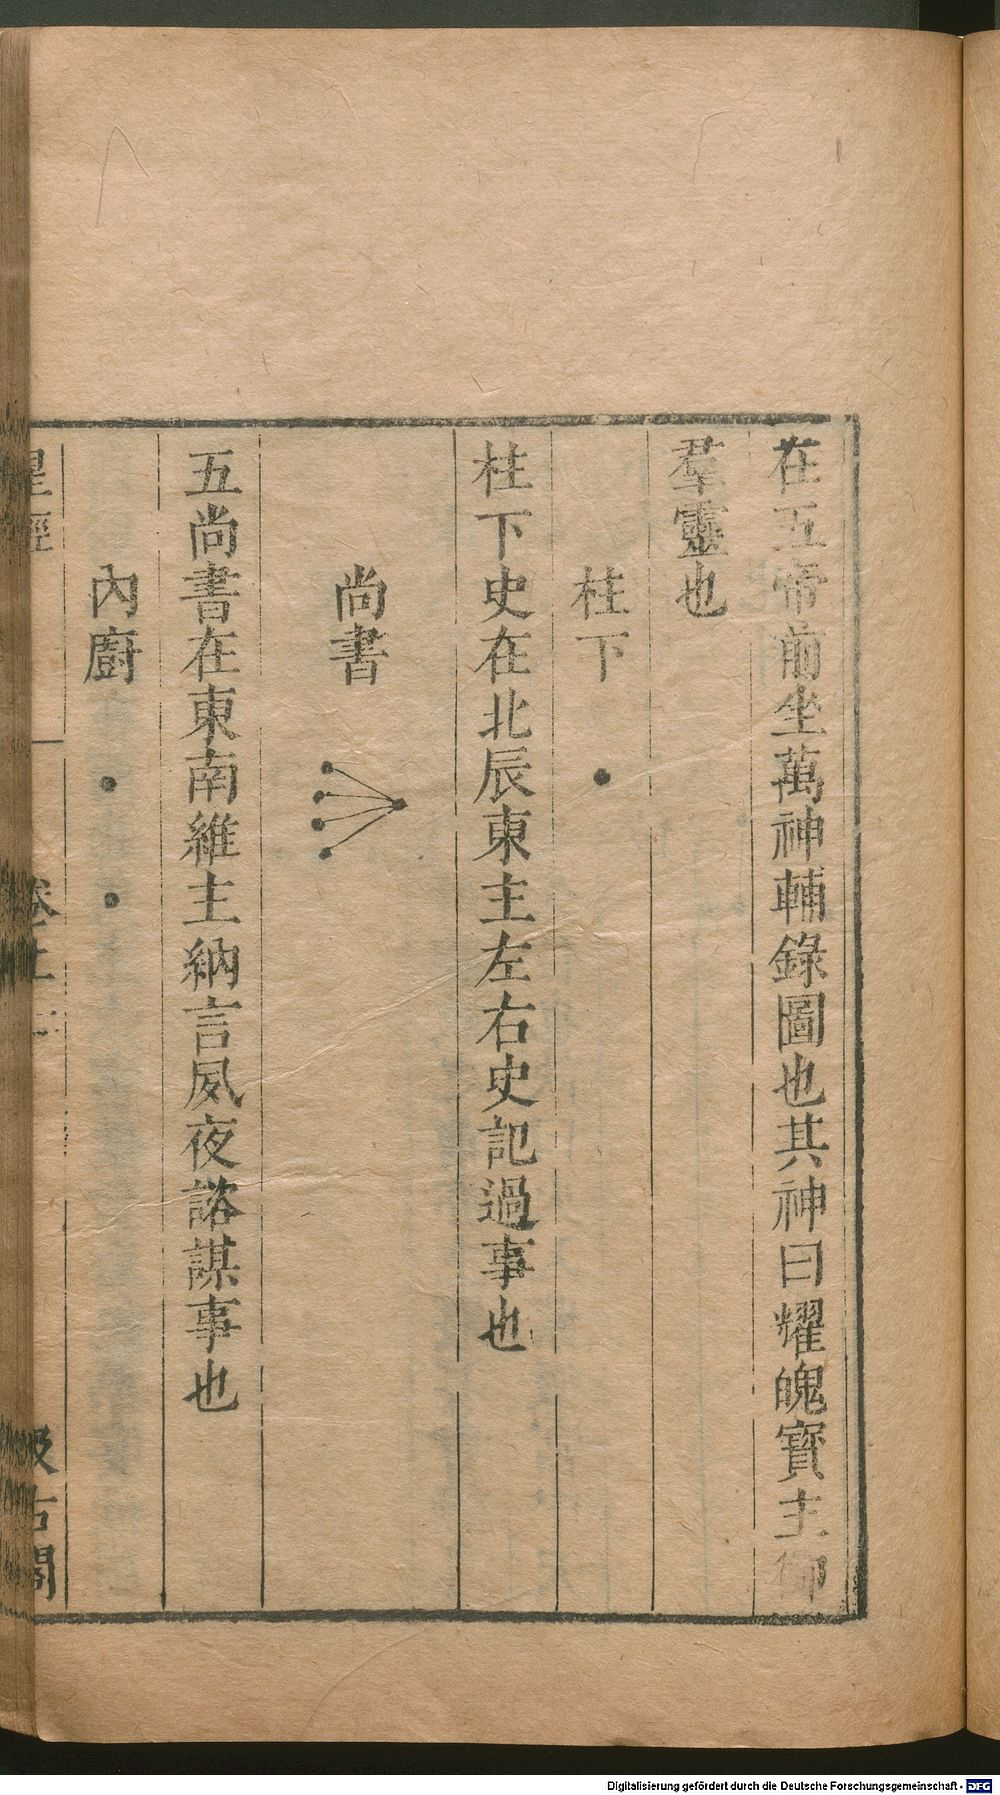 在五帝前坐萬神輔錄圖也其神曰耀魄寶主御
羣靈也
柱下
柱下史在北辰東主左右史記過事也
尚書
五尚書在東南維主納言夙夜諮謀事也
內廚
星經 卷上 汲古閣
Digitalisierung gefördert durch die Deutsche Forschungsgemeinschaft - DFG